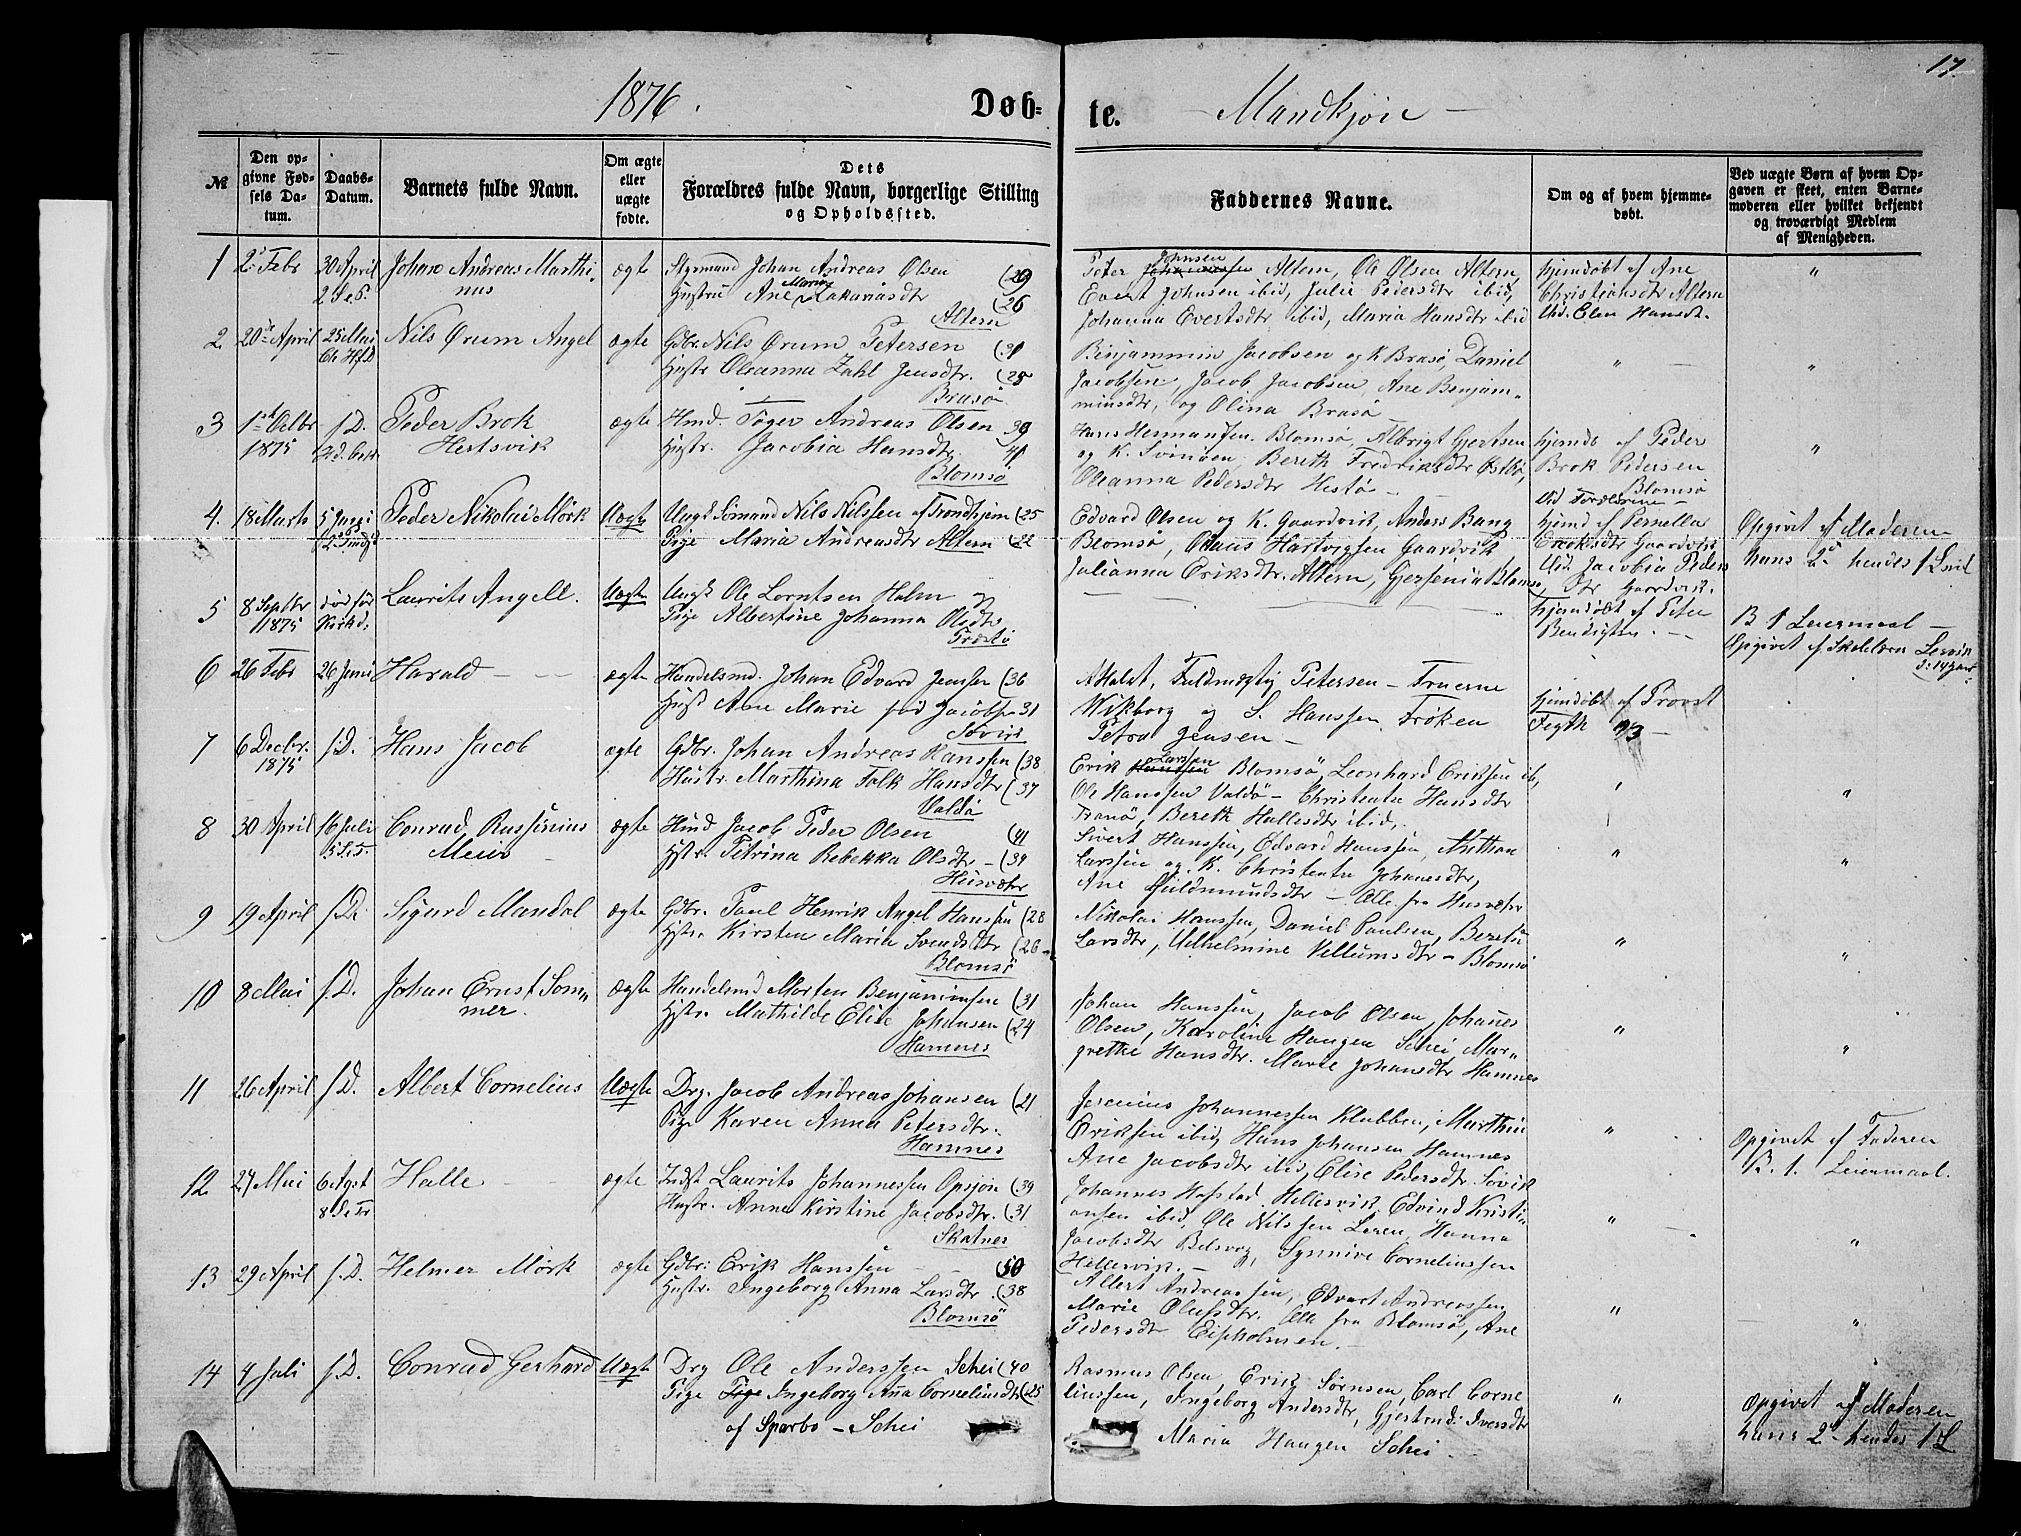 17.
1876.
Døb-
te.
Mandkjøn
№
Den op-
givne Fød-
sels Da-
tum.
Daabs-
Datum.
Barnets fulde Navn.
Om ægte
eller
uægte
fødte.
Dets
Forældres fulde Navn, borgerlige Stilling
og Opholdssted.
Faddernes Navne.
Om og af hvem hjemme-
døbt.
Ved uægte Børn af hvem Op-
gaven er skeet, enten Barne-
moderen eller hvilket bekjendt
og troværdigt Medlem
af Menigheden.
1 2 Febr 30 April Johan Andreas Marthi-
nus
ægte Styrmand Johan Andreas Olsen (29
Hustru Ane Maria Zakariasdtr (26
Altern
Peter Johnsen Altern, Ole Olsen Altern,
Evert Johnsen ibid, Julie Pedersdtr ibid,
Johanna Evertsdtr ibid, Maria Hansdtr ibid
Hjemdøbt af Ane
Christiansdtr Altern
Vid. Elen Hansdt.
"
2 20de April 25 Mai Nils Ørum Angel ægte Gdbr. Nils Ørum Petersen (31
Hustr Oleanna Zahl Jensdtr. (25
Brasø
Binjammin Jacobsen og K Brasø, Daniel
Jacobsen, Jacob Jacobsen, Ane Benjam-
minsdtr, og Olina Brasø
"
"
3 1ste Octbr
1875
s. D. Peder Brok
Hertsvik
ægte Hmd. Tøger Andreas Olsen 39
Hustr. Jacobia Hansdtr. 41
Blomsø
Hans Hermansen Blomsø, Albrigt Gjertsen
og K. Svinøen, Bereth Fredriksdtr Østbø,
Oleanna Pedersdtr Hestø
hjemdt af Peder
Brok Pedersen
Blomsø
Vid Forældrene
"
4. 18 Marts 5 Juni Peder Nikolai Mörk Uægte Ungk Sømand Nils Nilssen af Trondhjem (25
Pige Maria Andreasdtr Altern (22
Edvard Olsen og K. Gaardvik, Anders Bang
Blomsø, Claus Hartvigsen Gaardvik
Julianna Eriksdtr. Altern, Gjersenia Blomsø
hjemd af Pernella
Eriksdtr Gaardvik
Vid. Jacobia Peders
dtr Gaardvik.
Opgivet af Moderen
hans 2de hendes 1 Leie
5 8 Septbr
1875
død før
Kirkd. Laurits Angell. Uægte Ungk Ole Lorntsen Holm og
Pige Albertine Johanna Olsdtr
Hjemdøbt af Peter
Bendigtsen.
B 1 Leiermaal
Opgivet af Skolelærer
6 26 Febr 26 Juni Harald ægte Handelsmd. Johan Edvard Jenssen (36
Hust Ane Marie fød Jacobsen 31
Søvik
A Holst, Fuldmægtig Petersen - Fruerne
Wikborg og S. Hanssen, Frøken
Petra Jensen
Hjemdøbt af Provst
7 6 Decbr.
1875
s. D. Hans Jacob ægte Gdbr. Johan Andreas Hanssen (38
Hustr. Marthina Falk Hansdtr (37
Valdø
Erik Larssen Blomsø, Leonhard Eriksen ib,
Ole Hanssen Valdø - Christentse Hansdtr
Tranø, Bereth Hallesdtr ibid,
"
8 30 April 16 Juli
5 S. e. T.
Conrad Rassinius
Meier
ægte Hmd Jacob Peder Olsen (41
Hstr. Petrina Rebekka Olsdtr (39
Husvær
Sivert Hanssen, Edvard Hanssen, Anthon
Larssen og K. Christentse Johansdtr,
Ane Guldmundsdtr - Alle fra Husvær
"
"
9 19 April s. D. Sigurd Mandal ægte Gdbr. Paul Henrik Angel Hanssen (28
Hstr. Kirsten Maria Svendsdtr (26
Blomsø
Nikolai Hanssen, Daniel Paulsen, Bereth
Larsdtr, Vilhelmine Vellumsdtr - Blomsø
"
"
10 8 Mai s. D. Johan Ernst Som-
mer.
ægte Handelsmd Morten Benjaminsen (31
Hstr. Mathilde Elise Johansen (24
Hamnes
Johan Hanssen, Jacob Olsen, Johanes
Olsen, Karoline Haugen Schei, Mar-
grethe Hansdtr. Marie Johansdtr Hamnes
"
"
11 26 April s. D. Albert Cornelius Uægte Drg. Jacob Andreas Johansen (21
Pige Karen Anna Petersdtr.
Hamnes
Johannessen Klubben, Marthin
Eriksen ibid, Hans Johansen Hamnes
Ane Jacobsdtr ibid, Elise Pedersdtr. Søvik
"
Opgivet af Faderen
B. 1. Leiermaal.
12 27 Mai 6 Agst
8 S e Tr
Halle ægte Indst Laurits Johannessen Opsjøn (39
Hustr. Anne Kirstine Jacobsdtr. (31
Skatnes
Johannes Hofstad Hellesvik, Edvind Kristi-
ansen ibid, Ole Nilssen Leren, Hanna
Jacobsdtr Belsvog, Synnive Corneliussen
Hellesvik.
"
"
13 29 April s. D. Helmer Mörk ægte Gdbr: Erik Hanssen 50
Hustr. Ingeborg Anna Larsdtr. (38
Blomsø
Albert Andreassen, Edvart Andreassen
Marie Olufsdtr. Alle fra Blomsø, Ane
Pedersdtr Eipholmen.
"
"
14 4 Juli s. D. Conrad Gerhard Uægte Drg Ole Anderssen Schei (40
Pige Ingeborg Aña Corneliusdtr (25
af Sparbo - Schei
Rasmus Olsen, Erik Sørnsen, Carl Corne
liussen, Ingeborg Andersdtr, Gjertrud Iversdtr
Maria Haugen Schei.
"
Opgivet af Moderen
hans 2de hendes 1 L